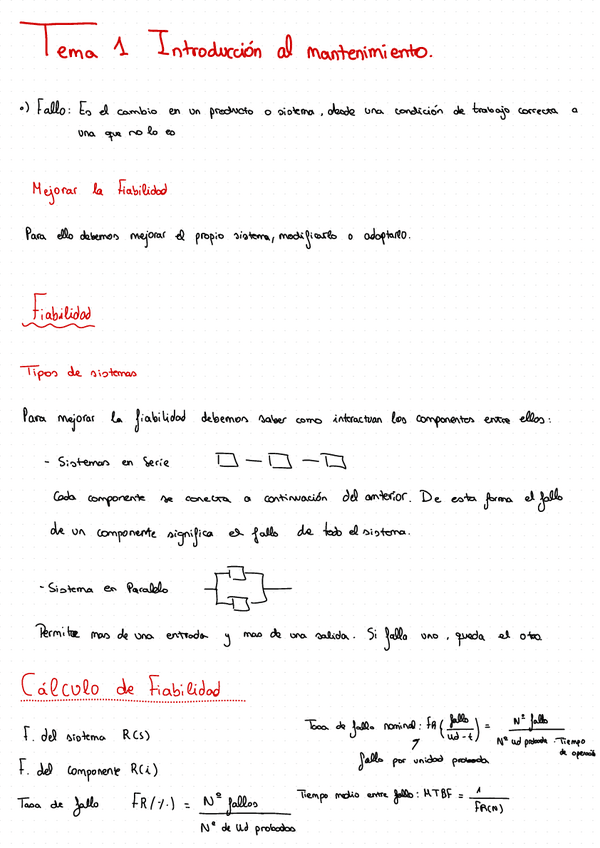 Tema 1 Introducción al mantenimiento.
•) Fallo: Es el cambio en un producto o sistema, desde una condición de trabajo correcta a
una que no lo es
Mejorar la Fiabilidad
Para ello debemos mejorar el propio sistema, modificarlo o adoptarlo.
Fiabilidad
Tipos de sistemas
Para mejorar la fiabilidad debemos saber como interactuan los componentes entre ellos:
- Sistemas en Serie
Cada componente se conecta a continuación del anterior. De esta forma el fallo
de un componente significa el fallo de todo el sistema.
- Sistema en Paralelo
Permite mas de una entrada y mas de una salida. Si falla uno, queda el otro
Cálculo de Fiabilidad
F. del sistema R(s)
F. del componente R(i)
Tasa de fallo FR(%) = Nº fallos
Nº de Ud probados
Tasa de fallo nominal: FR (fallo / ud-t) = Nº fallo
Nº ud probada · Tiempo
de operació
fallo por unidad probada
Tiempo medio entre fallo: MTBF = 1
FR(N)